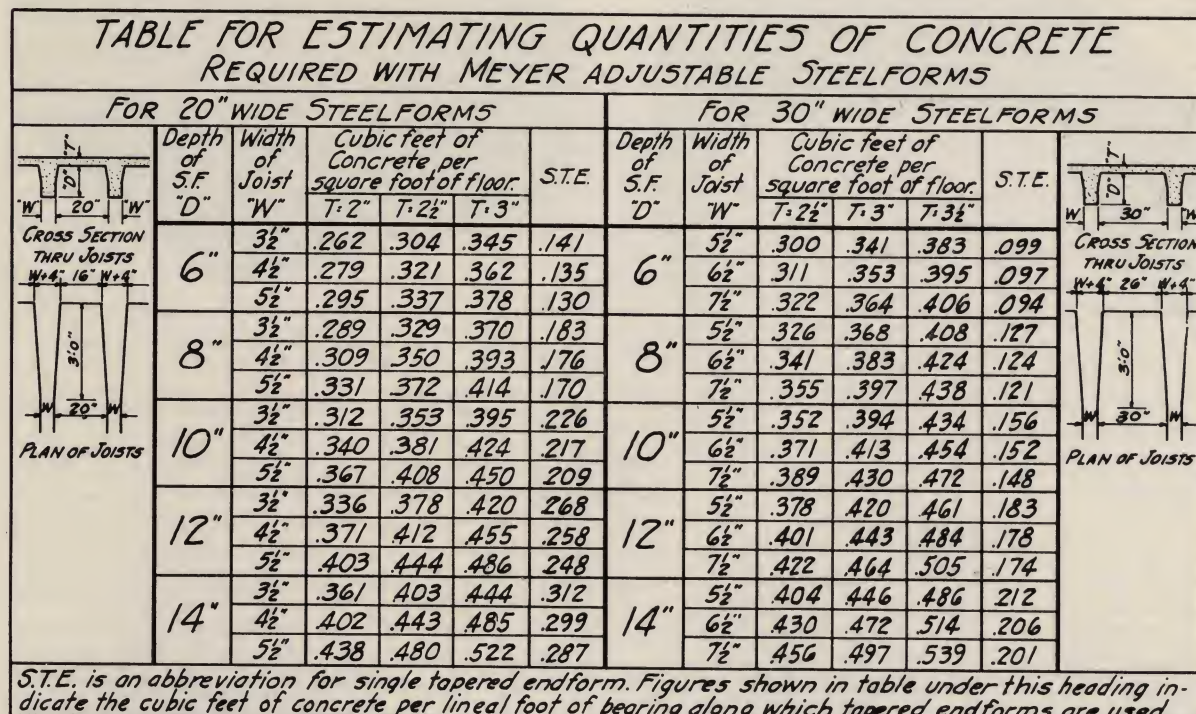 TABLE FOR ESTIMATING QUANTITIES OF CONCRETE
REQUIRED WITH MEYER ADJUSTABLE STEELFORMS
FOR 20" WIDE STEELFORMS
"T"
"D"
"W" 20" "W"
CROSS SECTION
THRU JOISTS
W+4" 16" W+4"
3'0"
W 20" W
PLAN OF JOISTS
Depth of S.F. "D" Width of Joist "W" Cubic feet of Concrete per square foot of floor. S.T.E.
T=2" T=2½" T=3"
6" 3½" .262 .304 .345 .141
4½" .279 .321 .362 .135
5½" .295 .337 .378 .130
8" 3½" .289 .329 .370 .183
4½" .309 .350 .393 .176
5½" .331 .372 .414 .170
10" 3½" .312 .353 .395 .226
4½" .340 .381 .424 .217
5½" .367 .408 .450 .209
12" 3½" .336 .378 .420 .268
4½" .371 .412 .455 .258
5½" .403 .444 .486 .248
14" 3½" .361 .403 .444 .312
4½" .402 .443 .485 .299
5½" .438 .480 .522 .287
FOR 30" WIDE STEELFORMS
Depth of S.F. "D" Width of Joist "W" Cubic feet of Concrete per square foot of floor. S.T.E.
T=2½" T=3" T=3½"
6" 5½" .300 .341 .383 .099
6½" .311 .353 .395 .097
7½" .322 .364 .406 .094
8" 5½" .326 .368 .408 .127
6½" .341 .383 .424 .124
7½" .355 .397 .438 .121
10" 5½" .352 .394 .434 .156
6½" .371 .413 .454 .152
7½" .389 .430 .472 .148
12" 5½" .378 .420 .461 .183
6½" .401 .443 .484 .178
7½" .422 .464 .505 .174
14" 5½" .404 .446 .486 .212
6½" .430 .472 .514 .206
7½" .456 .497 .539 .201
"T"
"D"
W 30" W
CROSS SECTION
THRU JOISTS
W+4" 26" W+4"
3'0"
W 30" W
PLAN OF JOISTS
S.T.E. is an abbreviation for single tapered endform. Figures shown in table under this heading in-
dicate the cubic feet of concrete per lineal foot of bearing along which tapered endforms are used